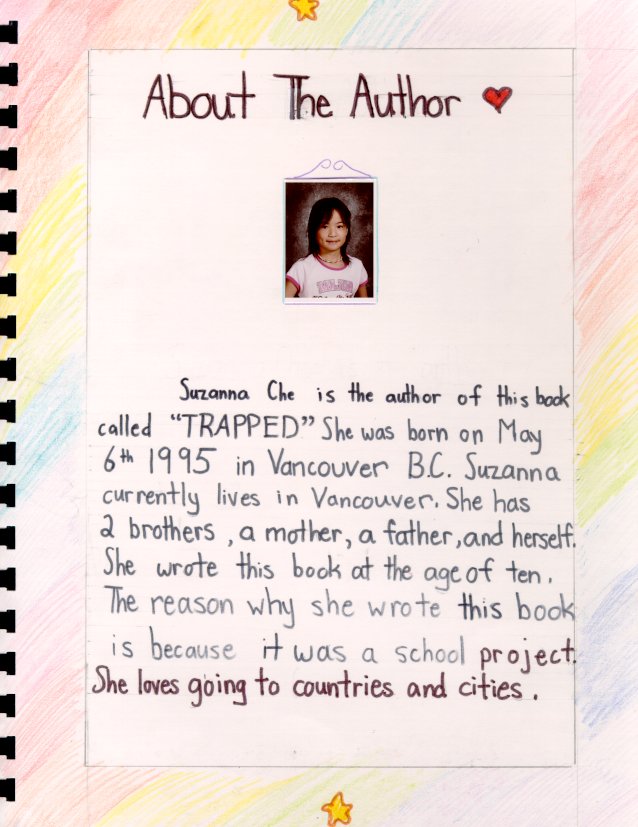 About The Author
Suzanna Che is the author of this book
called “TRAPPED” She was born on May
6th 1995 in Vancouver B.C. Suzanna
currently lives in Vancouver. She has
2 brothers, a mother, a father, and herself.
She wrote this book at the age of ten.
The reason why she wrote this book
is because it was a school project.
She loves going to countries and cities.